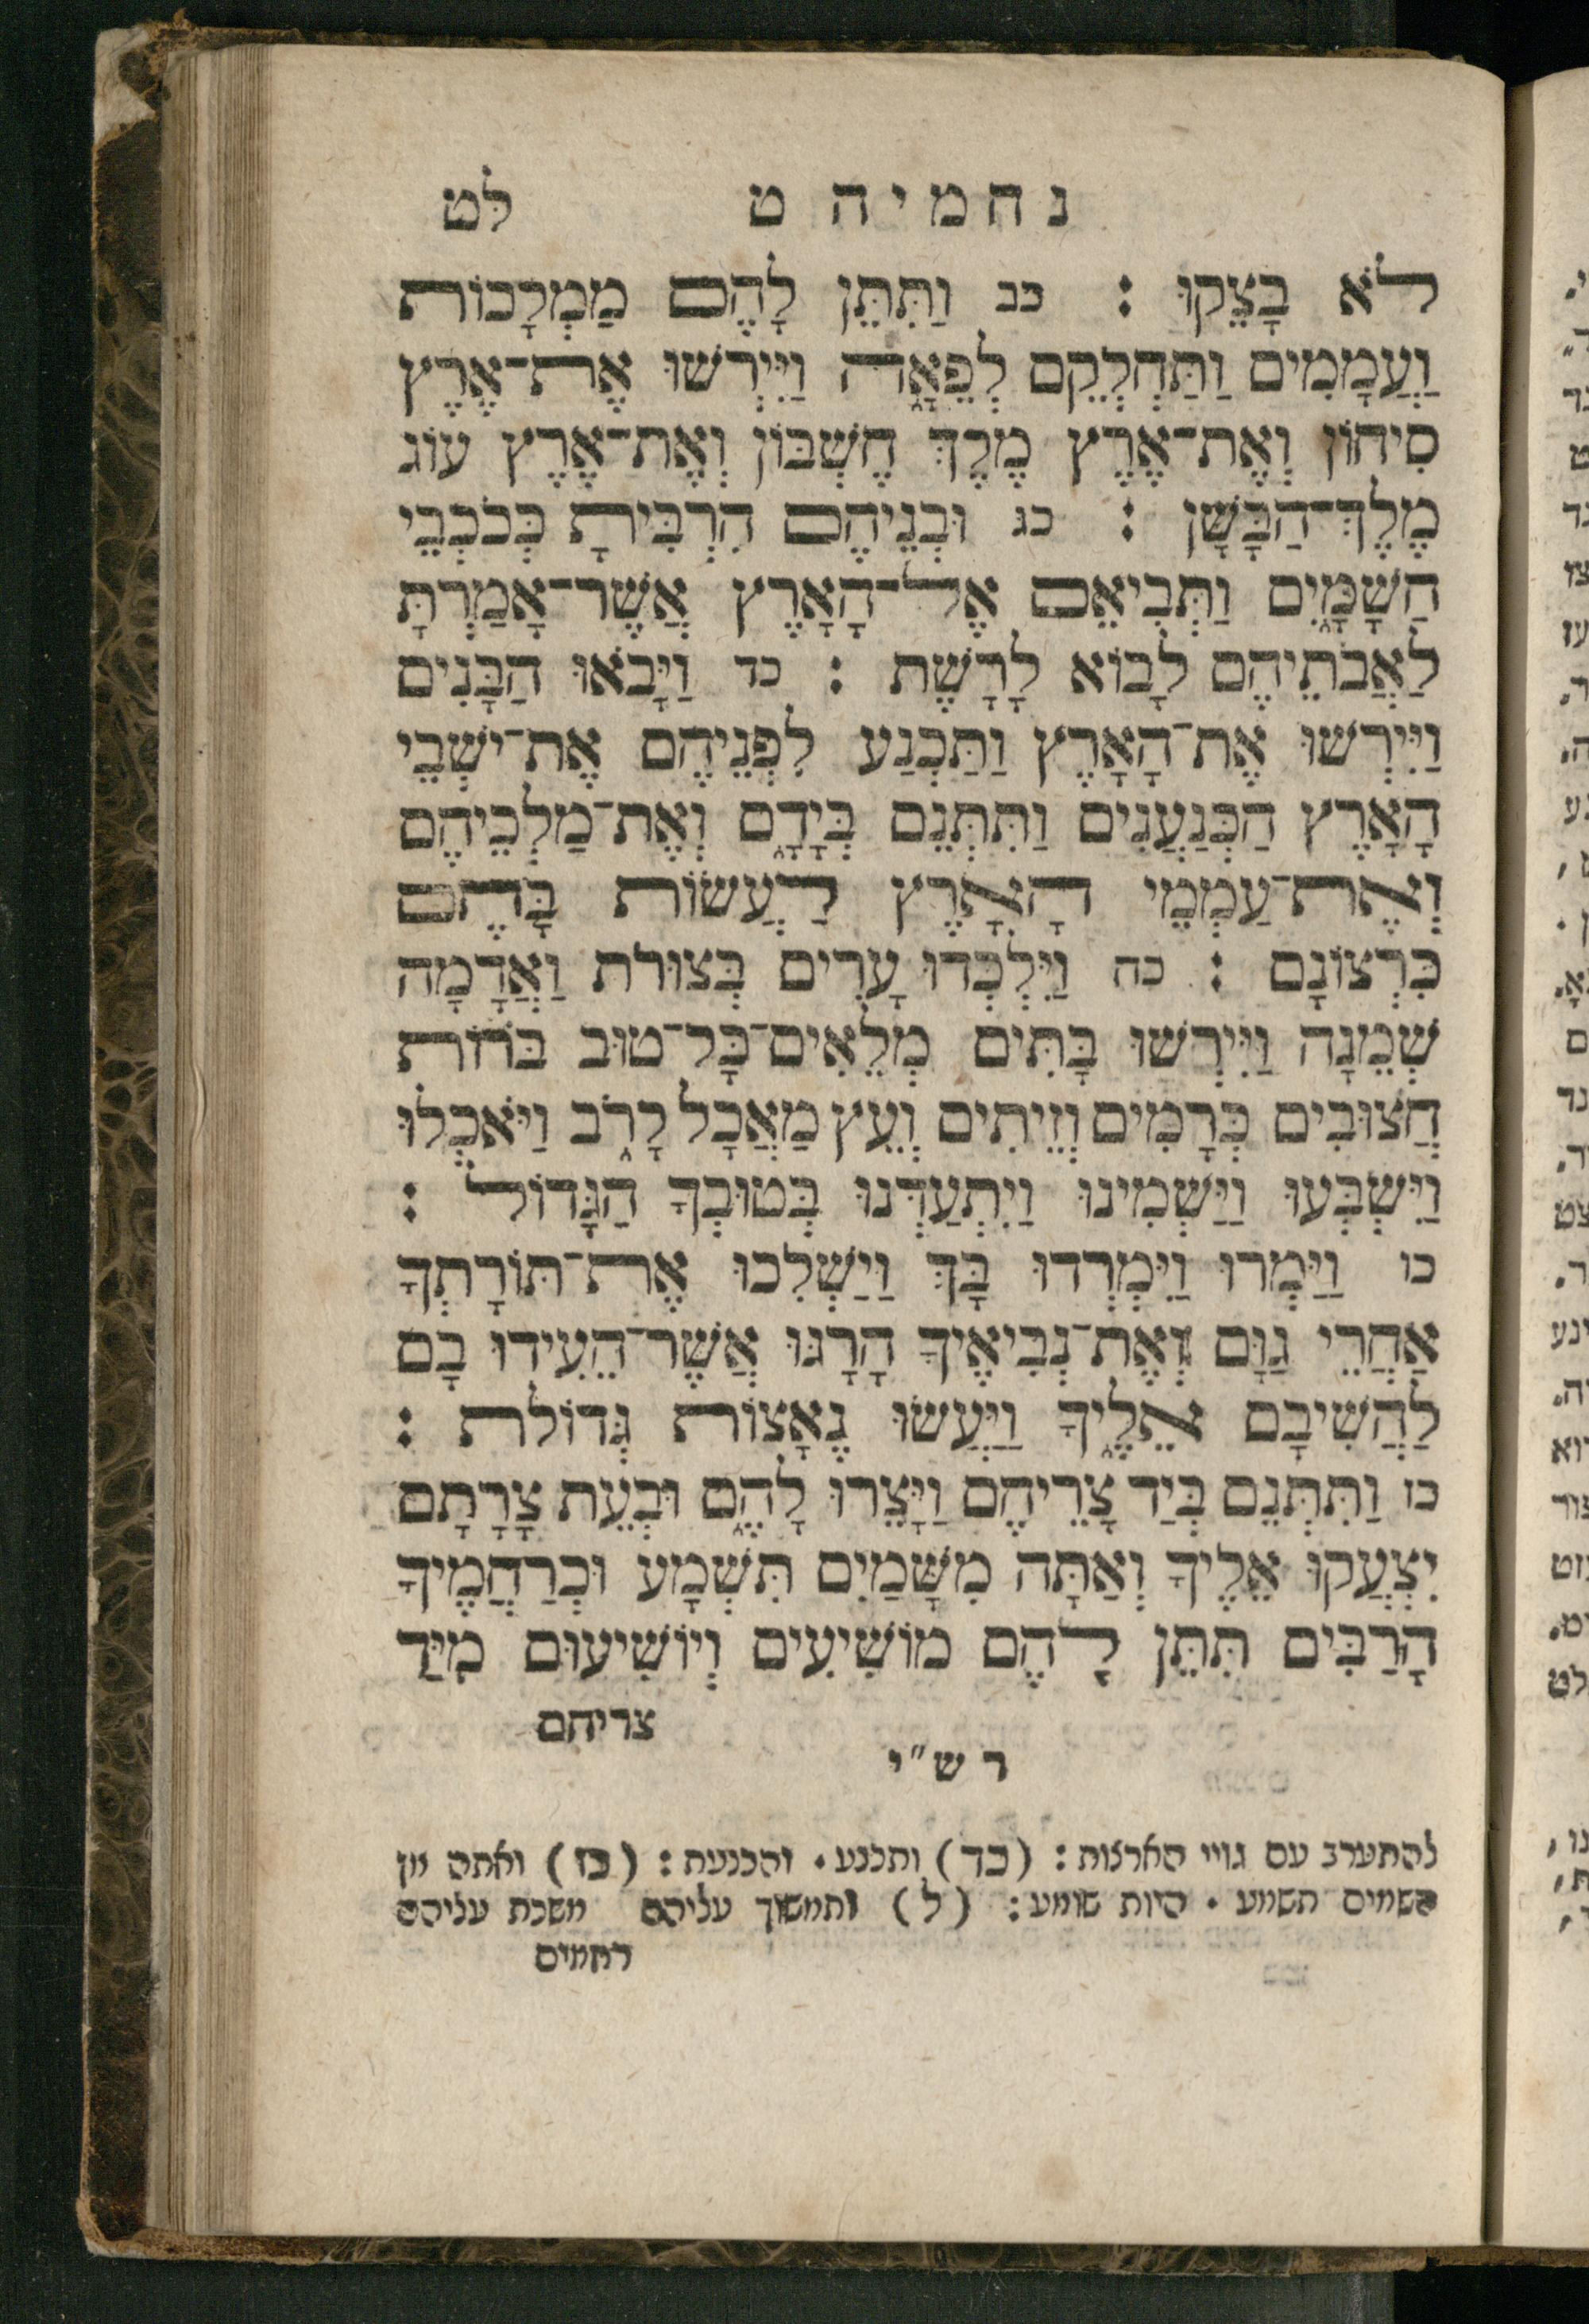 נחמיה ט לט
לֹא בָצֵקוּ : כב וַתִּתֵּן לָהֶם מַמְלָכוֹת
וַעֲמָמִים וַתַּחְלְקֵם לְפֵאָה וַיִּירְשׁוּ אֶת־אֶרֶץ
סִיחוֹן וְאֶת־אֶרֶץ מֶלֶךְ חֶשְׁבּוֹן וְאֶת־אֶרֶץ עוֹג
מֶלֶךְ־הַבָּשָׁן : כג וּבְנֵיהֶם הִרְבִּיתָ כְּכֹכְבֵי
הַשָּׁמָיִם וַתְּבִיאֵם אֶל־הָאָרֶץ אֲשֶׁר־אָמַרְתָּ
לַאֲבֹתֵיהֶם לָבוֹא לָרָשֶׁת : כד וַיָּבֹאוּ הַבָּנִים
וַיִּירְשׁוּ אֶת־הָאָרֶץ וַתַּכְנַע לִפְנֵיהֶם אֶת־יֹשְׁבֵי
הָאָרֶץ הַכְּנַעֲנִים וַתִּתְּנֵם בְּיָדָם וְאֶת־מַלְכֵיהֶם
וְאֶת־עַמְמֵי הָאָרֶץ לַעֲשׂוֹת בָּהֶם
כִּרְצוֹנָם : כה וַיִּלְכְּדוּ עָרִים בְּצוּרֹת וַאֲדָמָה
שְׁמֵנָה וַיִּירְשׁוּ בָּתִּים מְלֵאִים־כָּל־טוּב בֹּרוֹת
חֲצוּבִים כְּרָמִים וְזֵיתִים וְעֵץ מַאֲכָל לָרֹב וַיֹּאכְלוּ
וַיִּשְׂבְּעוּ וַיַּשְׁמִינוּ וַיִּתְעַדְּנוּ בְּטוּבְךָ הַגָּדוֹל :
כו וַיַּמְרוּ וַיִּמְרְדוּ בָּךְ וַיַּשְׁלִכוּ אֶת־תּוֹרָתְךָ
אַחֲרֵי גַוָּם וְאֶת־נְבִיאֶיךָ הָרָגוּ אֲשֶׁר־הֵעִידוּ בָם
לַהֲשִׁיבָם אֵלֶיךָ וַיַּעֲשׂוּ נֶאָצוֹת גְּדוֹלֹת :
כז וַתִּתְּנֵם בְּיַד צָרֵיהֶם וַיָּצֵרוּ לָהֶם וּבְעֵת צָרָתָם
יִצְעֲקוּ אֵלֶיךָ וְאַתָּה מִשָּׁמַיִם תִּשְׁמָע וּכְרַחֲמֶיךָ
הָרַבִּים תִּתֵּן לָהֶם מוֹשִׁיעִים וְיוֹשִׁיעוּם מִיַּד
צריהם
רש״י
להתערב עם גויי הארצות : (כד) ותכנע . והכנעת : (כז) ואתה מן
השמים תשמע . היית שומע : (ל) ותמשוך עליהם משכת עליהם
רחמים